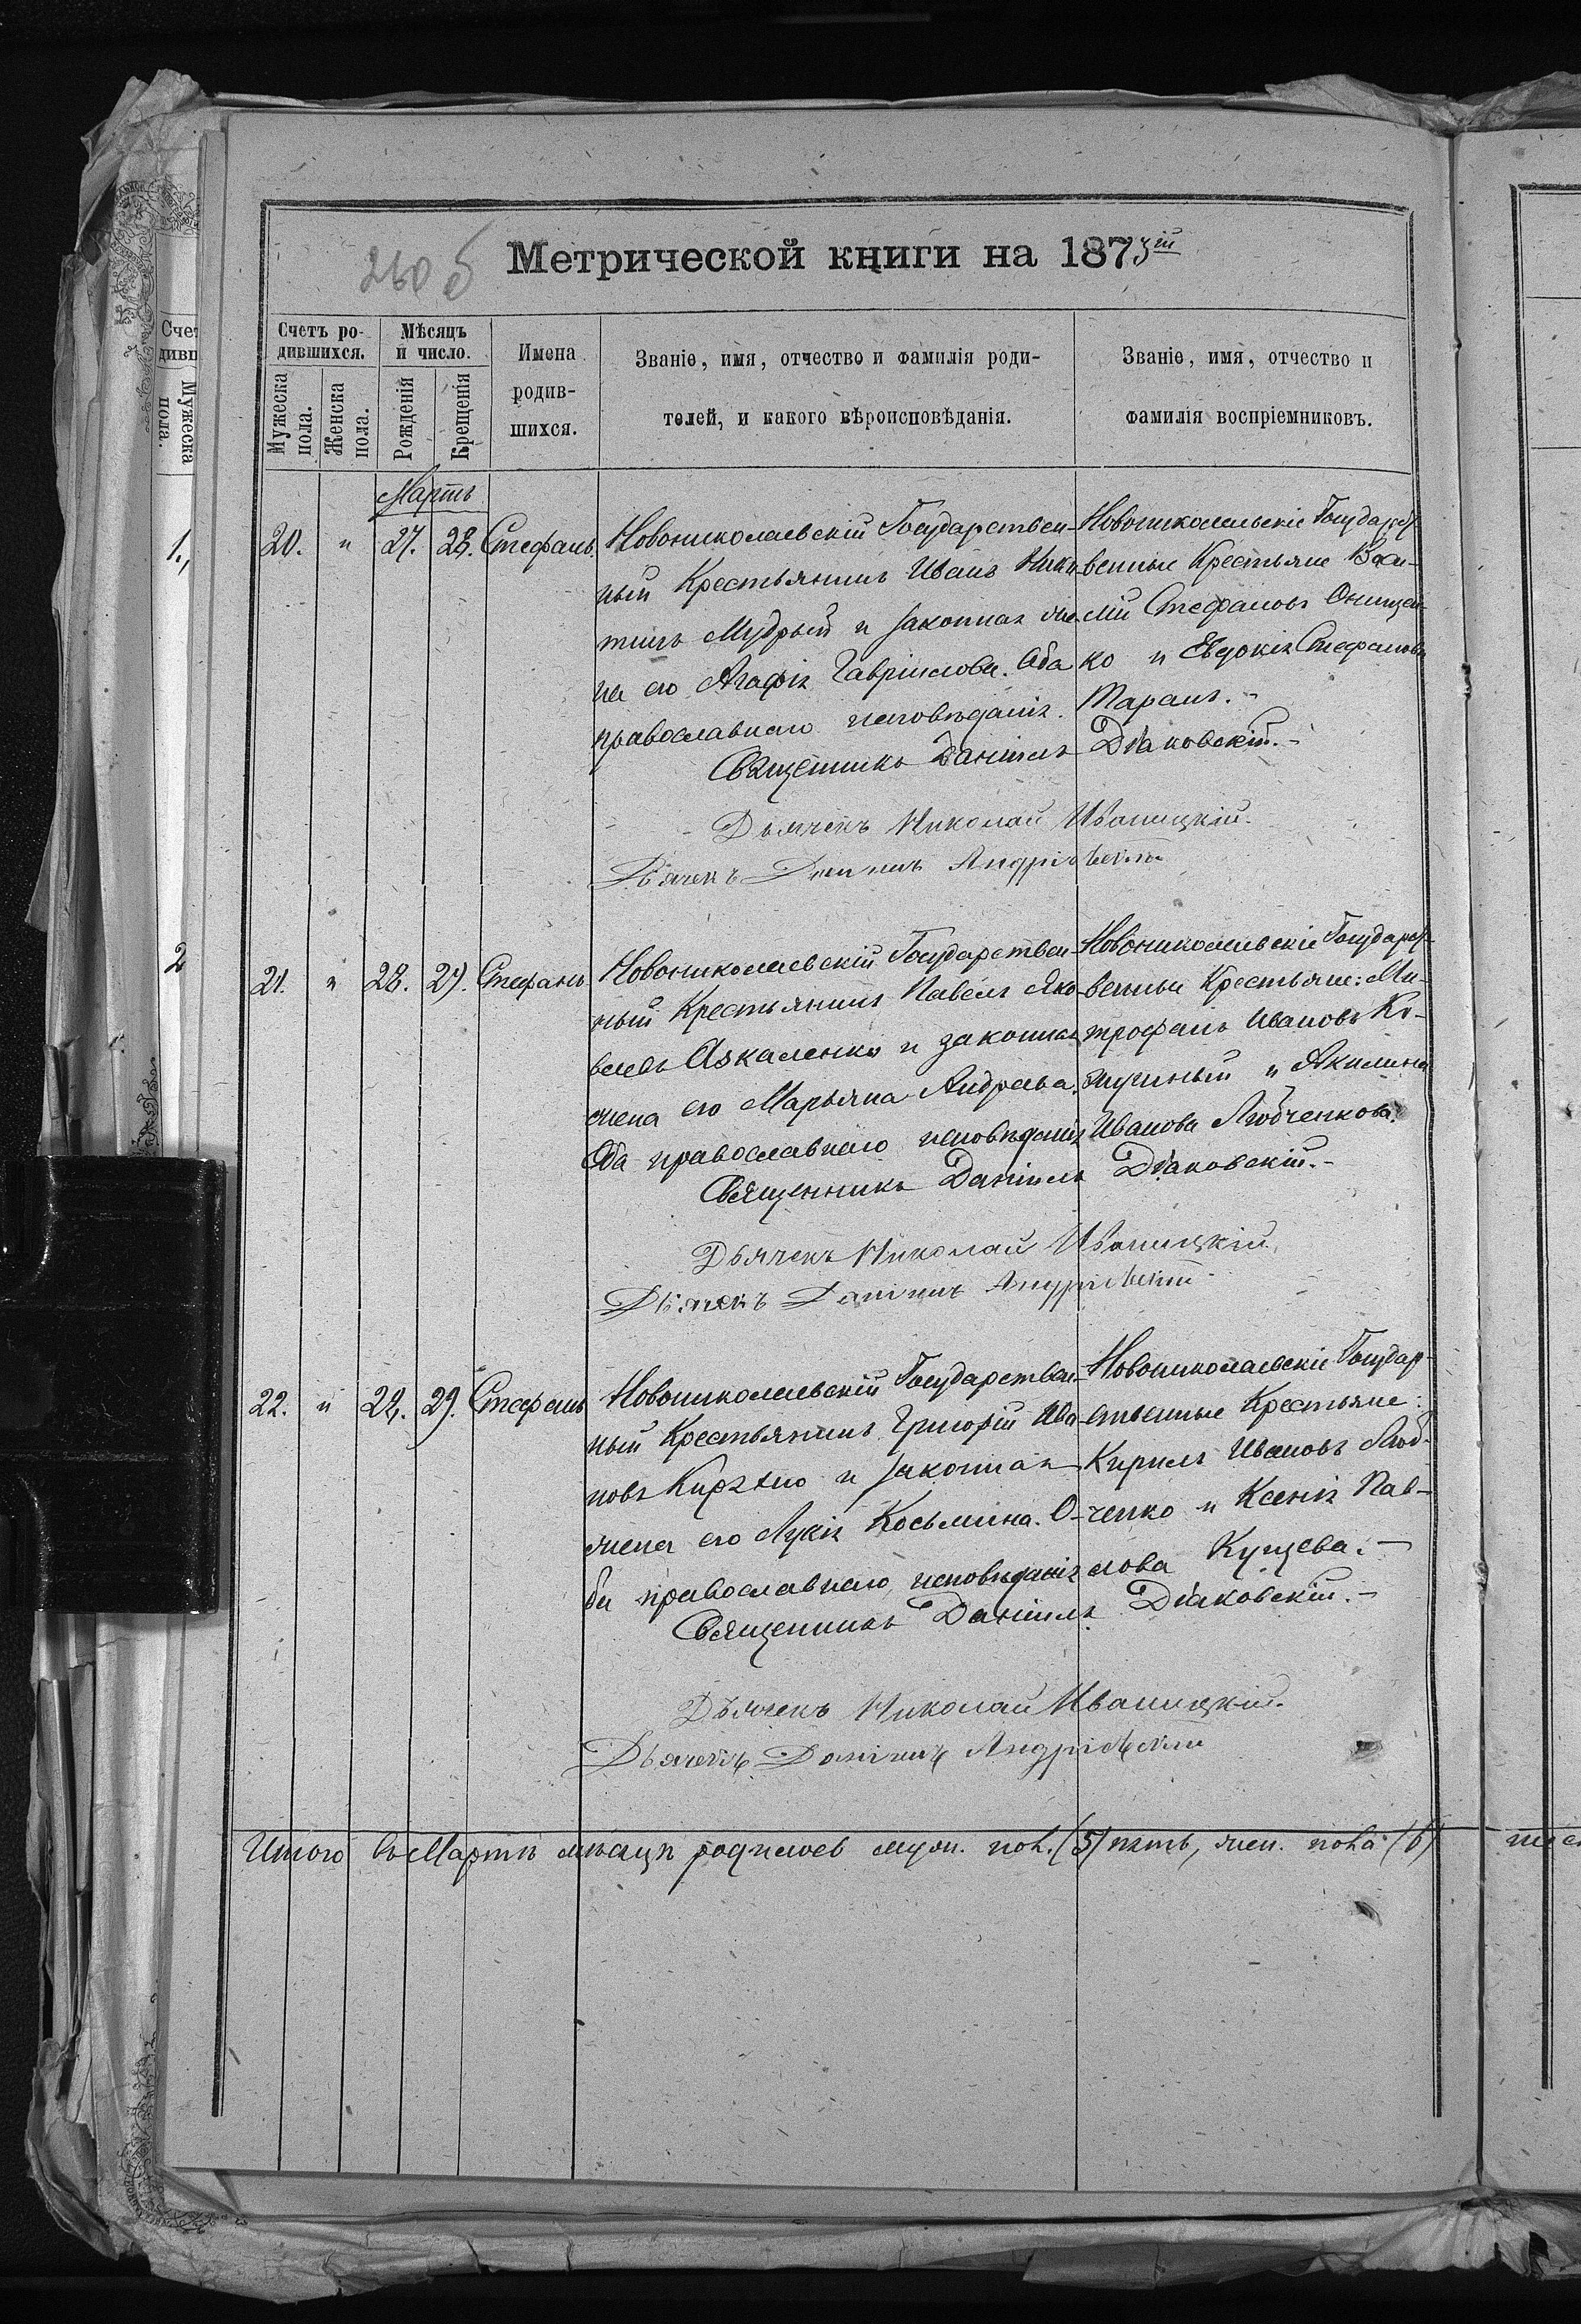 260 б Метрической книги на 1873й
Счетъ ро-
дившихся.
Мужеска пола.
Женска пола.
Мѣсяцъ и число.
Рожденія
Крещенія
Имена
родив-
шихся.
Званіе, имя, отчество и фамилія роди-
телей, и какого вѣроисповѣданія.
Званіе, имя, отчество и
фамилія воспріемниковъ.
Мартъ
20. " 27. 28. Стефанъ.
Новониколаевскій Государствен-
ный Крестьянинъ Иванъ Ники-
тинъ Мудрый и законная же-
на его Агафія Гавріилова. Оба
православнаго исповѣданія.
Новониколаевскіе Государст-
венные Крестьяне Васи-
лій Стефановъ Онищен-
ко и Евдокія Стефанова
Таранъ.-
Священникъ Даніилъ Діаковскій.-
Дьячекъ Николай Иваницкій.
Дьячекъ Даніилъ Андріевскій
21. " 28. 29. Стефанъ
Новониколаевскій Государствен-
ный Крестьянинъ Павелъ Яко-
влевъ Аскаленко и законная
жена его Марьяна Андреева.
Оба православнаго исповѣданія
Новониколаевскіе Государст-
венные Крестьяне: Ми-
трофанъ Ивановъ Ко-
и Акилина
Иванова Любченкова.
Священникъ Даніилъ Діаковскій.-
Дьячекъ Николай Иваницкій.
Дьячекъ Даніилъ Андріевскій
22. " 28. 29. Стефанъ
Новониколаевскій Государствен-
ный Крестьянинъ Григорій Ива-
новъ и законная
жена его Лукія Косьмина. О-
ба православнаго исповѣданія
Новониколаевскіе Государ-
ственные Крестьяне:
Кирилъ Ивановъ Люб-
ченко и Ксенія Пав-
лова Кущева.-
Священникъ Даніилъ Діаковскій.-
Дьячекъ Николай Иваницкій.
Дьячекъ Даніилъ Андріевскій
Итого въ Мартѣ мѣсяцѣ родилось муж. пол. (5) пять, жен. пола (6)